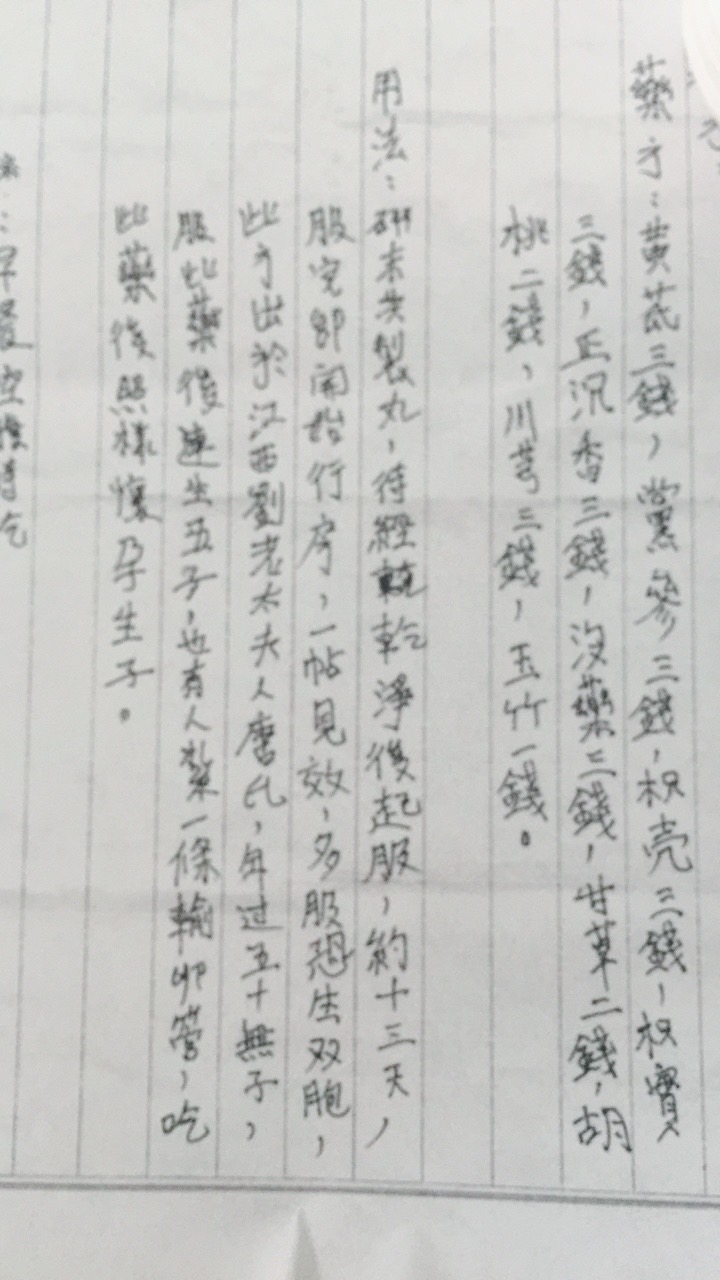 藥方：黃芪三錢，黨參三錢，枳壳三錢，枳實
三錢，正沉香三錢，沒藥三錢，甘草二錢，胡
桃二錢，川芎三錢，玉竹一錢。
用法：研末共製丸，待經乾淨後起服，約十三天，
服完即開始行房，一帖見效，多服恐生双胞，
此方出於江西劉老太夫人唐氏，年过五十無子，
服此藥後連生五子，也有人紮一條輸卵管，吃
此藥後照樣懷孕生子。
：早晨空腹時吃